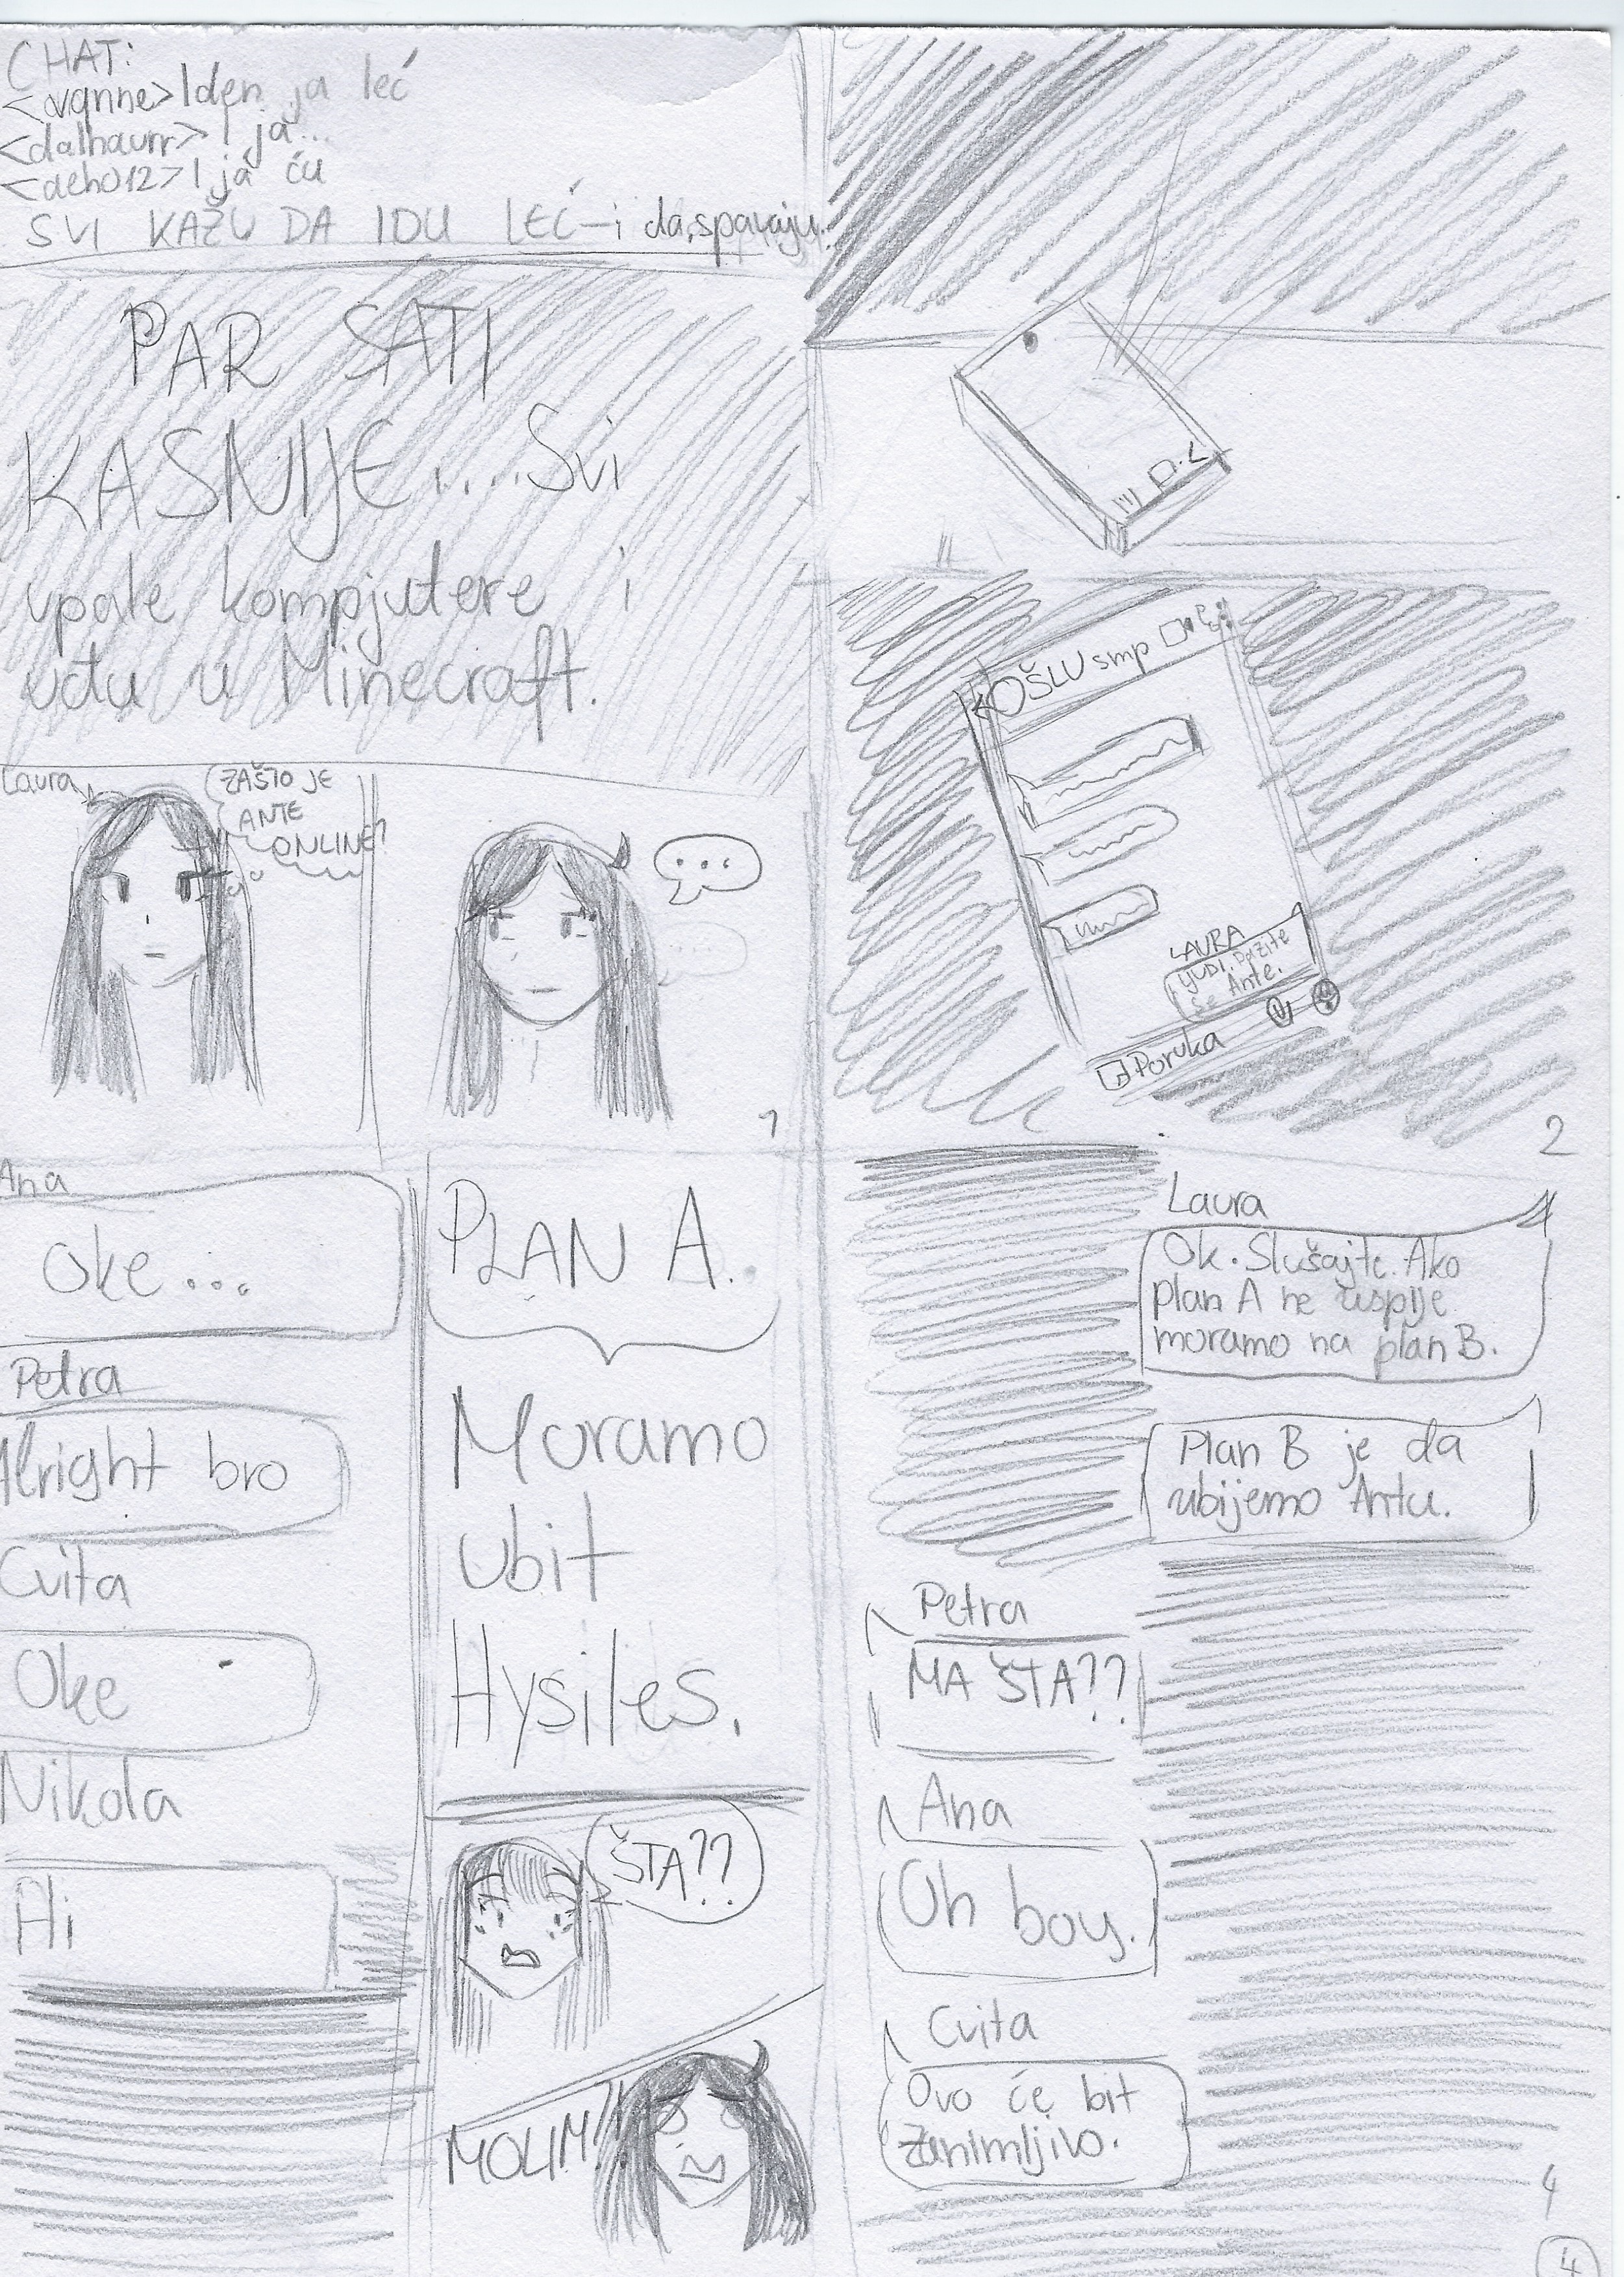 CHAT:
<avanne> Iden ja leć
<dalhaurr> I ja...
<deh012> I ja ću
SVI KAŽU DA IDU LEĆ-i da spavaju.
PAR SATI
KASNIJE....Svi
upale kompjutere i
uđu u Minecraft.
Laura
ZAŠTO JE
ANTE
ONLINE?
...
1
OŠLU smp
LAURA
LJUDI, Pazite
se Ante.
Poruka
2
Ana
Oke...
Petra
Alright bro
Cvita
Oke
Nikola
Hi
PLAN A.
Moramo
ubit
Hysiles.
ŠTA??
MOLIM?!
Laura
Ok. Slušajte. Ako
plan A ne uspije
moramo na plan B.
Plan B je da
ubijemo Antu.
Petra
MA ŠTA??
Ana
Oh boy.
Cvita
Ovo će bit
zanimljivo.
4
4